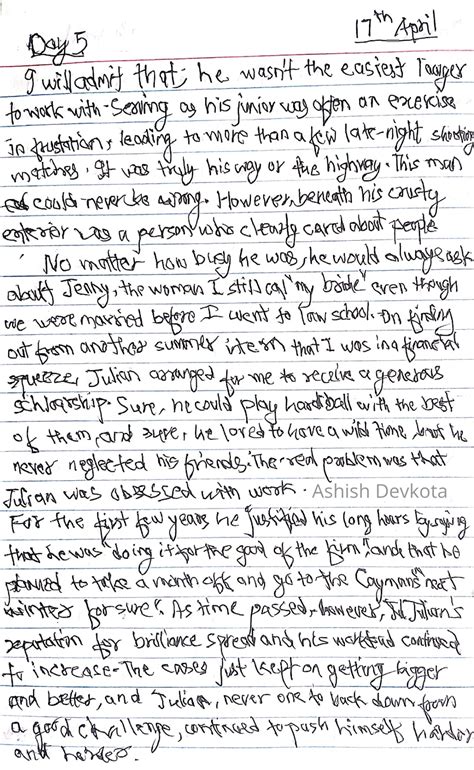 Day 5
17th April
I will admit that, he wasn't the easiest lawyer
to work with - Serving as his junior was often an exercise
in frustation, leading to more than a few late-night shouting
matches. It was truly his way or the highway. This man
could never be wrong. However, beneath his crusty
exterior was a person who clearly cared about people
No matter how busy he was, he would always ask
about Jenny, the woman I still call "my bride" even though
we were married before I went to law school. On finding
out from another summer intern that I was in a financial
squeeze, Julian arranged for me to receive a generous
schlorship. Sure, he could play hardball with the best
of them, and sure, he loved to have a wild time, but he
never neglected his friends. The real problem was that
Julian was obsessed with work.
Ashish Devkota
For the first few years he justified his long hours by saying
that he was "doing it for the good of the firm" and that he
planned to take a month off and go to the Caymans "next
winter for sure". As time passed, however, Julian's
reputation for brilliance spread and his workload continued
to increase. The cases just kept on getting bigger
and better, and Julian, never one to back down from
a good challenge, continued to push himself harder
and harder.